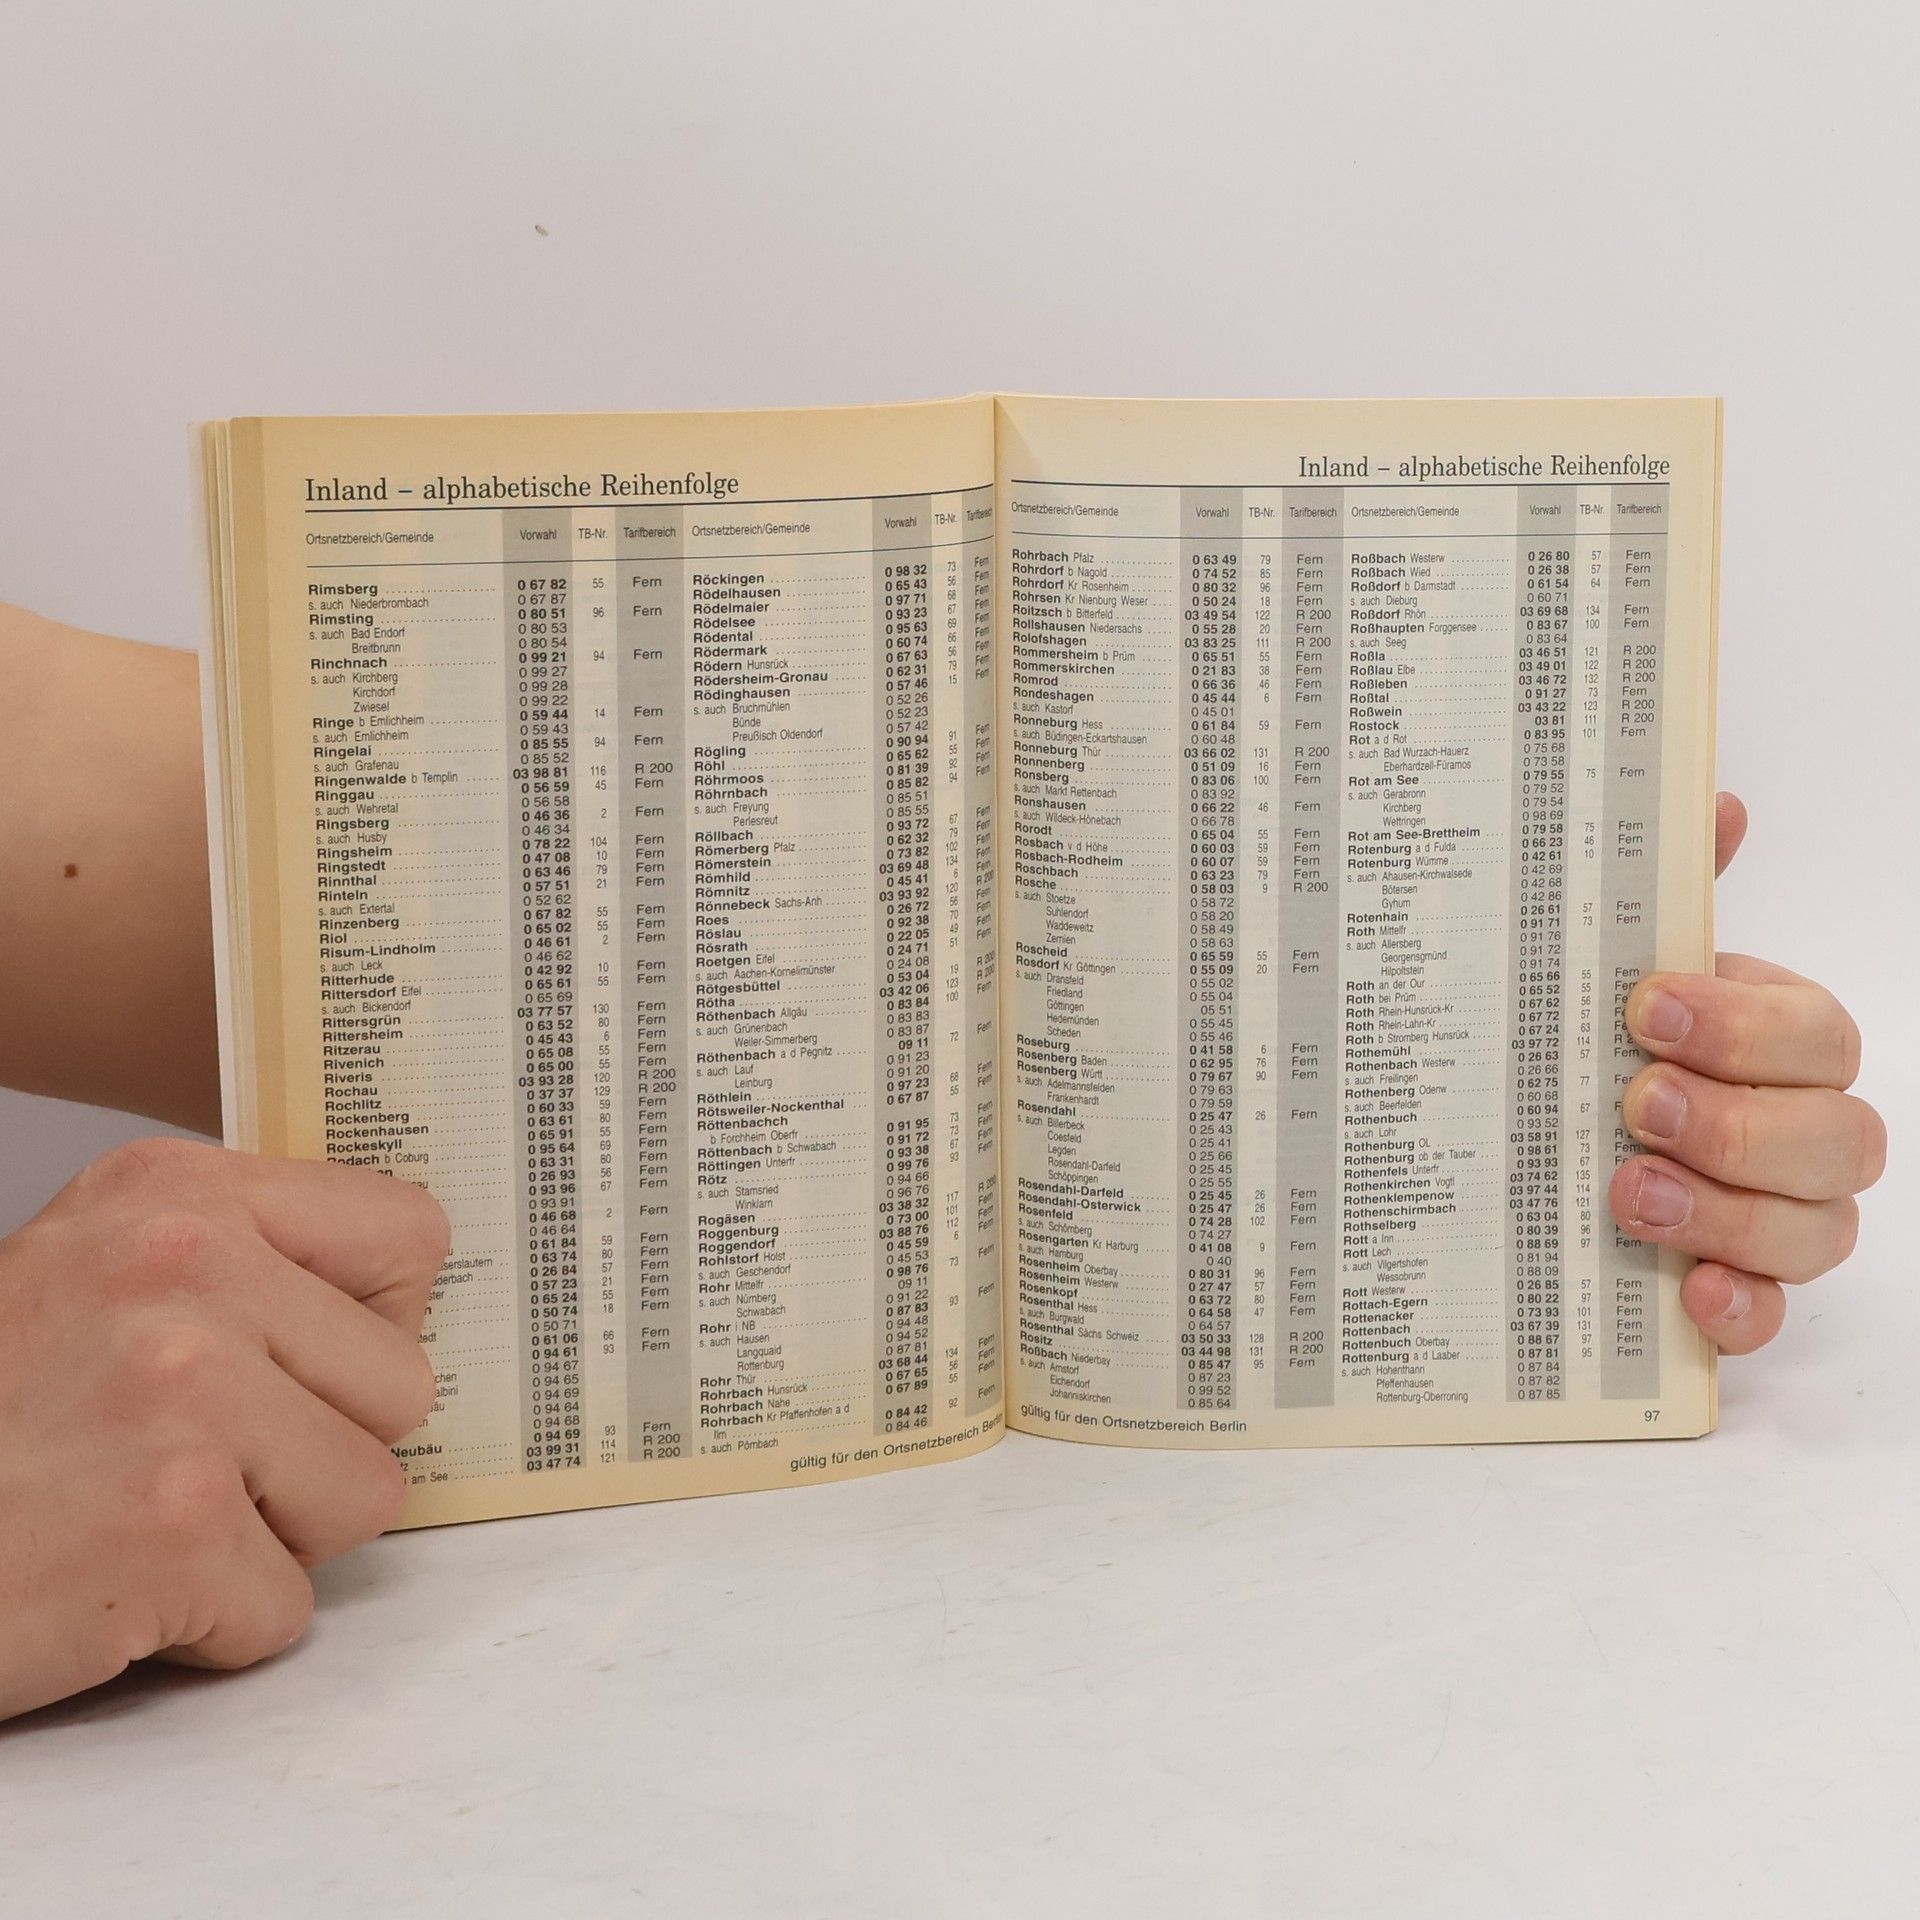 Inland – alphabetische Reihenfolge
Ortsnetzbereich/Gemeinde Vorwahl TB-Nr. Tarifbereich
Rimsberg 0 67 82 55 Fern
s. auch Niederbrombach 0 67 87
Rimsting 0 80 51 96 Fern
s. auch Bad Endorf 0 80 53
Breitbrunn 0 80 54
Rinchnach 0 99 21 94 Fern
s. auch Kirchberg 0 99 27
Kirchdorf 0 99 28
Zwiesel 0 99 22
Ringe b Emlichheim 0 59 44 14 Fern
s. auch Emlichheim 0 59 43
Ringelai 0 85 55 94 Fern
s. auch Grafenau 0 85 52
Ringenwalde b Templin 03 98 81 116 R 200
Ringgau 0 56 59 45 Fern
s. auch Wehretal 0 56 58
Ringsberg 0 46 36 2 Fern
s. auch Husby 0 46 34
Ringsheim 0 78 22 104 Fern
Ringstedt 0 47 08 10 Fern
Rinnthal 0 63 46 79 Fern
Rinteln 0 57 51 21 Fern
s. auch Extertal 0 52 62
Rinzenberg 0 67 82 55 Fern
Riol 0 65 02 55 Fern
Risum-Lindholm 0 46 61 2 Fern
s. auch Leck 0 46 62
Ritterhude 0 42 92 10 Fern
Rittersdorf Eifel 0 65 61 55 Fern
s. auch Bickendorf 0 65 69
Rittersgrün 03 77 57 130 Fern
Rittersheim 0 63 52 80 Fern
Ritzerau 0 45 43 6 Fern
Rivenich 0 65 08 55 Fern
Riveris 0 65 00 55 Fern
Rochau 03 93 28 120 R 200
Rochlitz 0 37 37 129 R 200
Rockenberg 0 60 33 59 Fern
Rockenhausen 0 63 61 80 Fern
Rockeskyll 0 65 91 55 Fern
Rodach b Coburg 0 95 64 69 Fern
0 63 31 80 Fern
0 26 93 56 Fern
0 93 96 67 Fern
0 93 91
0 46 68 2 Fern
0 46 64
0 61 84 59 Fern
0 63 74 80 Fern
0 26 84 57 Fern
0 57 23 21 Fern
0 65 24 55 Fern
0 50 74 18 Fern
0 50 71
0 61 06 66 Fern
0 94 61 93 Fern
0 94 67
0 94 65
0 94 69
0 94 64
0 94 68
Neubäu 0 94 69 93 Fern
03 99 31 114 R 200
am See 03 47 74 121 R 200
Ortsnetzbereich/Gemeinde Vorwahl TB-Nr. Tarifbereich
Röckingen 0 98 32 73 Fern
Rödelhausen 0 65 43 56 Fern
Rödelmaier 0 97 71 68 Fern
Rödelsee 0 93 23 67 Fern
Rödental 0 95 63 69 Fern
Rödermark 0 60 74 66 Fern
Rödern Hunsrück 0 67 63 56 Fern
Rödersheim-Gronau 0 62 31 79 Fern
Rödinghausen 0 57 46 15 Fern
s. auch Bruchmühlen 0 52 26
Bünde 0 52 23
Preußisch Oldendorf 0 57 42
Rögling 0 90 94 91 Fern
Röhl 0 65 62 55 Fern
Röhrmoos 0 81 39 92 Fern
Röhrnbach 0 85 82 94 Fern
s. auch Freyung 0 85 51
Perlesreut 0 85 55
Röllbach 0 93 72 67 Fern
Römerberg Pfalz 0 62 32 79 Fern
Römerstein 0 73 82 102 Fern
Römhild 03 69 48 134 Fern
Römnitz 0 45 41 6 Fern
Rönnebeck Sachs-Anh 03 93 92 120 R 200
Roes 0 26 72 56 Fern
Röslau 0 92 38 70 Fern
Rösrath 0 22 05 49 Fern
Roetgen Eifel 0 24 71 51 Fern
s. auch Aachen-Kornelimünster 0 24 08
Rötgesbüttel 0 53 04 19 R 200
Rötha 03 42 06 123 R 200
Röthenbach Allgäu 0 83 84 100 Fern
s. auch Grünenbach 0 83 83
Weiler-Simmerberg 0 83 87
Röthenbach a d Pegnitz 09 11 72 Fern
s. auch Lauf 0 91 23
Leinburg 0 91 20
Röthlein 0 97 23 68 Fern
Rötsweiler-Nockenthal 0 67 87 55 Fern
Röttenbachch
b Forchheim Oberfr 0 91 95 73 Fern
Röttenbach b Schwabach 0 91 72 73 Fern
Röttingen Unterfr 0 93 38 67 Fern
Rötz 0 99 76 93 Fern
s. auch Stamsried 0 94 66
Winklarn 0 96 76
Rogäsen 03 38 32 117 R 200
Roggenburg 0 73 00 101 Fern
Roggendorf 03 88 76 112 Fern
Rohlstorf Holst 0 45 59 6 Fern
s. auch Geschendorf 0 45 53
Rohr Mittelfr 0 98 76 73 Fern
s. auch Nürnberg 09 11
Schwabach 0 91 22
Rohr i NB 0 87 83 93 Fern
s. auch Hausen 0 94 48
Langquaid 0 94 52
Rottenburg 0 87 81
Rohr Thür 03 68 44 134 Fern
Rohrbach Hunsrück 0 67 65 56 Fern
Rohrbach Nahe 0 67 89 55 Fern
Rohrbach Kr Pfaffenhofen a d
Ilm 0 84 42 92 Fern
s. auch Pörnbach 0 84 46
gültig für den Ortsnetzbereich Berlin
Inland – alphabetische Reihenfolge
Ortsnetzbereich/Gemeinde Vorwahl TB-Nr. Tarifbereich
Rohrbach Pfalz 0 63 49 79 Fern
Rohrdorf b Nagold 0 74 52 85 Fern
Rohrdorf Kr Rosenheim 0 80 32 96 Fern
Rohrsen Kr Nienburg Weser 0 50 24 18 Fern
Roitzsch b Bitterfeld 03 49 54 122 R 200
Rollshausen Niedersachs 0 55 28 20 Fern
Rolofshagen 03 83 25 111 R 200
Rommersheim b Prüm 0 65 51 55 Fern
Rommerskirchen 0 21 83 38 Fern
Romrod 0 66 36 46 Fern
Rondeshagen 0 45 44 6 Fern
s. auch Kastorf 0 45 01
Ronneburg Hess 0 61 84 59 Fern
s. auch Büdingen-Eckartshausen 0 60 48
Ronneburg Thür 03 66 02 131 R 200
Ronnenberg 0 51 09 16 Fern
Ronsberg 0 83 06 100 Fern
s. auch Markt Rettenbach 0 83 92
Ronshausen 0 66 22 46 Fern
s. auch Wildeck-Hönebach 0 66 78
Rorodt 0 65 04 55 Fern
Rosbach v d Höhe 0 60 03 59 Fern
Rosbach-Rodheim 0 60 07 59 Fern
Roschbach 0 63 23 79 Fern
Rosche 0 58 03 9 R 200
s. auch Stoetze 0 58 72
Suhlendorf 0 58 20
Waddeweitz 0 58 49
Zernien 0 58 63
Roscheid 0 65 59 55 Fern
Rosdorf Kr Göttingen 0 55 09 20 Fern
s. auch Dransfeld 0 55 02
Friedland 0 55 04
Göttingen 05 51
Hedemünden 0 55 45
Scheden 0 55 46
Roseburg 0 41 58 6 Fern
Rosenberg Baden 0 62 95 76 Fern
Rosenberg Württ 0 79 67 90 Fern
s. auch Adelmannsfelden 0 79 63
Frankenhardt 0 79 59
Rosendahl 0 25 47 26 Fern
s. auch Billerbeck 0 25 43
Coesfeld 0 25 41
Legden 0 25 66
Rosendahl-Darfeld 0 25 45
Schöppingen 0 25 55
Rosendahl-Darfeld 0 25 45 26 Fern
Rosendahl-Osterwick 0 25 47 26 Fern
Rosenfeld 0 74 28 102 Fern
s. auch Schömberg 0 74 27
Rosengarten Kr Harburg 0 41 08 9 Fern
s. auch Hamburg 0 40
Rosenheim Oberbay 0 80 31 96 Fern
Rosenheim Westerw 0 27 47 57 Fern
Rosenkopf 0 63 72 80 Fern
Rosenthal Hess 0 64 58 47 Fern
s. auch Burgwald 0 64 57
Rosenthal Sächs Schweiz 03 50 33 128 R 200
Rositz 03 44 98 131 R 200
Roßbach Niederbay 0 85 47 95 Fern
s. auch Arnstorf 0 87 23
Eichendorf 0 99 52
Johanniskirchen 0 85 64
Ortsnetzbereich/Gemeinde Vorwahl TB-Nr. Tarifbereich
Roßbach Westerw 0 26 80 57 Fern
Roßbach Wied 0 26 38 57 Fern
Roßdorf b Darmstadt 0 61 54 64 Fern
s. auch Dieburg 0 60 71
Roßdorf Rhön 03 69 68 134 Fern
Roßhaupten Forggensee 0 83 67 100 Fern
s. auch Seeg 0 83 64
Roßla 03 46 51 121 R 200
Roßlau Elbe 03 49 01 122 R 200
Roßleben 03 46 72 132 R 200
Roßtal 0 91 27 73 Fern
Roßwein 03 43 22 123 R 200
Rostock 03 81 111 R 200
Rot a d Rot 0 83 95 101 Fern
s. auch Bad Wurzach-Hauerz 0 75 68
Eberhardzell-Füramos 0 73 58
Rot am See 0 79 55 75 Fern
s. auch Gerabronn 0 79 52
Kirchberg 0 79 54
Wettringen 0 98 69
Rot am See-Brettheim 0 79 58 75 Fern
Rotenburg a d Fulda 0 66 23 46 Fern
Rotenburg Wümme 0 42 61 10 Fern
s. auch Ahausen-Kirchwalsede 0 42 69
Bötersen 0 42 68
Gyhum 0 42 86
Rotenhain 0 26 61 57 Fern
Roth Mittelfr 0 91 71 73 Fern
s. auch Allersberg 0 91 76
Georgensgmünd 0 91 72
Hilpoltstein 0 91 74
Roth an der Our 0 65 66 55 Fern
Roth bei Prüm 0 65 52 55
Roth Rhein-Hunsrück-Kr 0 67 62 56
Roth Rhein-Lahn-Kr 0 67 72 57
Roth b Stromberg Hunsrück 0 67 24 63
Rothemühl 03 97 72 114
Rothenbach Westerw 0 26 63 57 Fern
s. auch Freilingen 0 26 66
Rothenberg Odenw 0 62 75 77
s. auch Beerfelden 0 60 68
Rothenbuch 0 60 94 67
s. auch Lohr 0 93 52
Rothenburg OL 03 58 91 127
Rothenburg ob der Tauber 0 98 61 73
Rothenfels Unterfr 0 93 93 67
Rothenkirchen Vogtl 03 74 62 135
Rothenklempenow 03 97 44 114
Rothenschirmbach 03 47 76 121
Rothselberg 0 63 04 80
Rott a Inn 0 80 39 96
Rott Lech 0 88 69 97 Fern
s. auch Vilgertshofen 0 81 94
Wessobrunn 0 88 09
Rott Westerw 0 26 85 57 Fern
Rottach-Egern 0 80 22 97 Fern
Rottenacker 0 73 93 101 Fern
Rottenbach 03 67 39 131 Fern
Rottenbuch Oberbay 0 88 67 97 Fern
Rottenburg a d Laaber 0 87 81 95 Fern
s. auch Hohenthann 0 87 84
Pfeffenhausen 0 87 82
Rottenburg-Oberroning 0 87 85
gültig für den Ortsnetzbereich Berlin
97